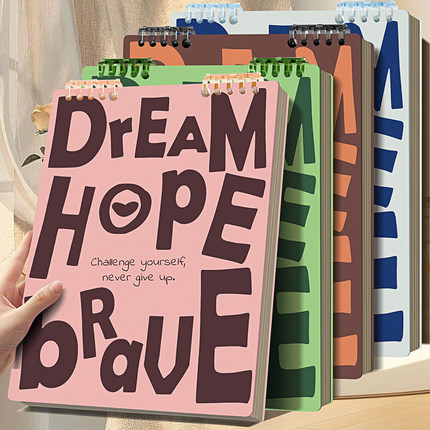 DrEAM
HOPE
Challenge yourself,
never give up.
bRavE